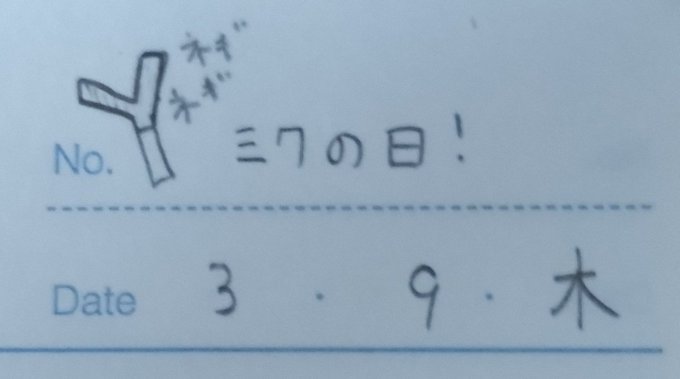 ネギ
ネギ
No. ミクの日!
Date 3・9・木